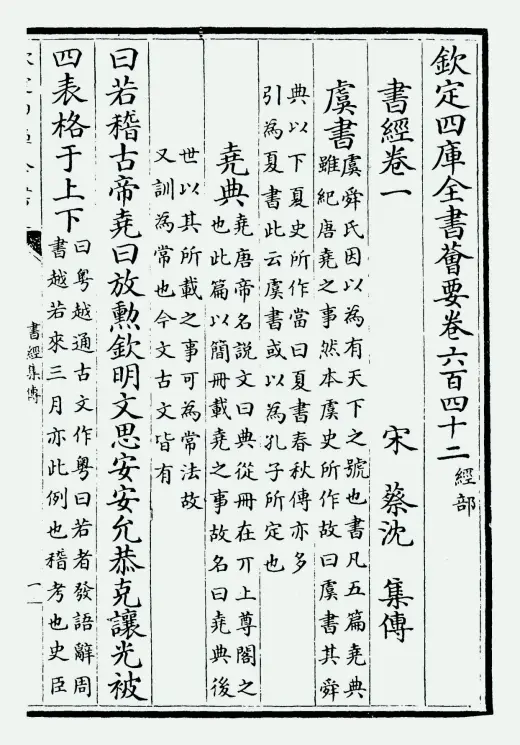 欽定四庫全書薈要卷六百四十二 經部
書經卷一
宋 蔡沈 集傳
虞書 虞舜氏因以為有天下之號也書凡五篇堯典
雖紀唐堯之事然本虞史所作故曰虞書其舜
典以下夏史所作當曰夏書春秋傳亦多
引為夏書此云虞書或以為孔子所定也
堯典 堯唐帝名說文曰典從冊在丌上尊閣之
也此篇以簡冊載堯之事故名曰堯典後
世以其所載之事可為常法故
又訓為常也今文古文皆有
曰若稽古帝堯曰放勲欽明文思安安允恭克讓光被
四表格于上下 曰粤越通古文作粤曰若者發語辭周
書越若來三月亦此例也稽考也史臣
書經集傳
一